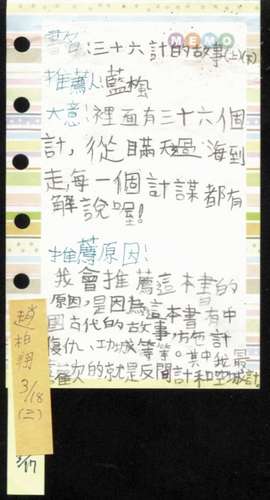 書名:三十六計的故事(上)(下)
MEMO
推薦人:藍楓
大意:裡面有三十六個
計,從瞞天過海到
走,每一個計謀都有
解說喔!
推薦原因:
我會推薦這本書的
原因,是因為這本書有中
國古代的故事,包括計
復仇、功成等等。其中我最
喜歡的就是反間計和空城計
趙柏翔
3/18
(三)
3/17